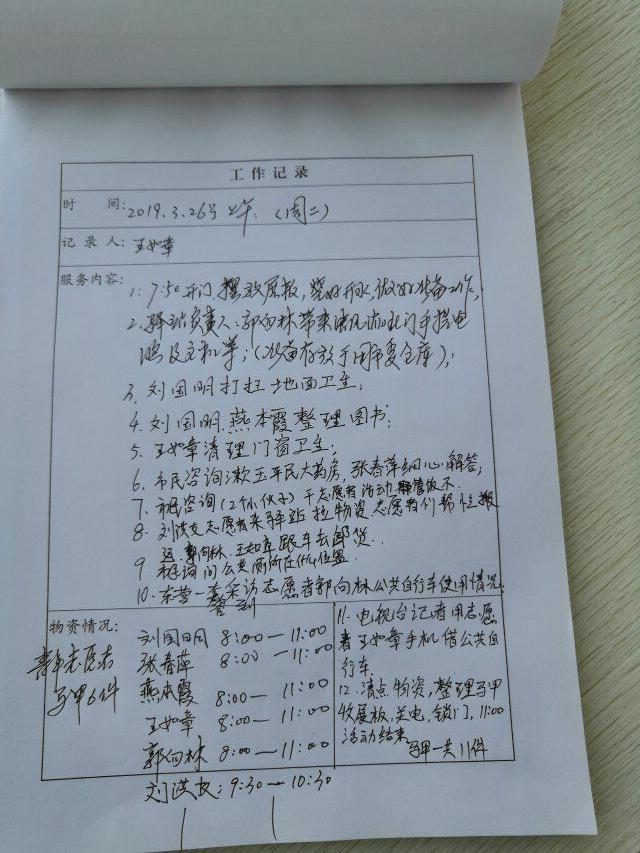 工作记录
时 间：2019.3.26号上午.（周二）
记录人：王如章
服务内容：
1. 7:50开门，摆放展板，烧好开水，做好准备工作，
2. 驿站负责人：郭向林带来
及主机等；（准备存放于团市委仓库），
3. 刘国明打扫地面卫生；
4. 刘国明.燕本霞整理图书；
5. 王如章清理门窗卫生；
6. 市民咨询漱玉平民大药房，张春萍细心解答，
7. 市民咨询（2个小伙子）干志愿者活动
8. 刘洪友志愿者来驿站拉物资.志愿者们帮忙搬
运.郭向林.王如章跟车去卸货.
9 市民询问公共厕所在什么位置
10. 东营一套采访志愿者郭向林公共自行车使用情况.
签到
物资情况：
青年志愿者
马甲6件
刘国明 8:00—11:00
张春萍 8:00—11:00
燕本霞 8:00—11:00
王如章 8:00—11:00
郭向林 8:00—11:00
刘洪友：9:30—10:30
11. 电视台记者用志愿
者王如章手机借公共自
行车.
12. 清点物资，整理马甲
收展板，关电，锁门，11:00
活动结束
马甲一共11件